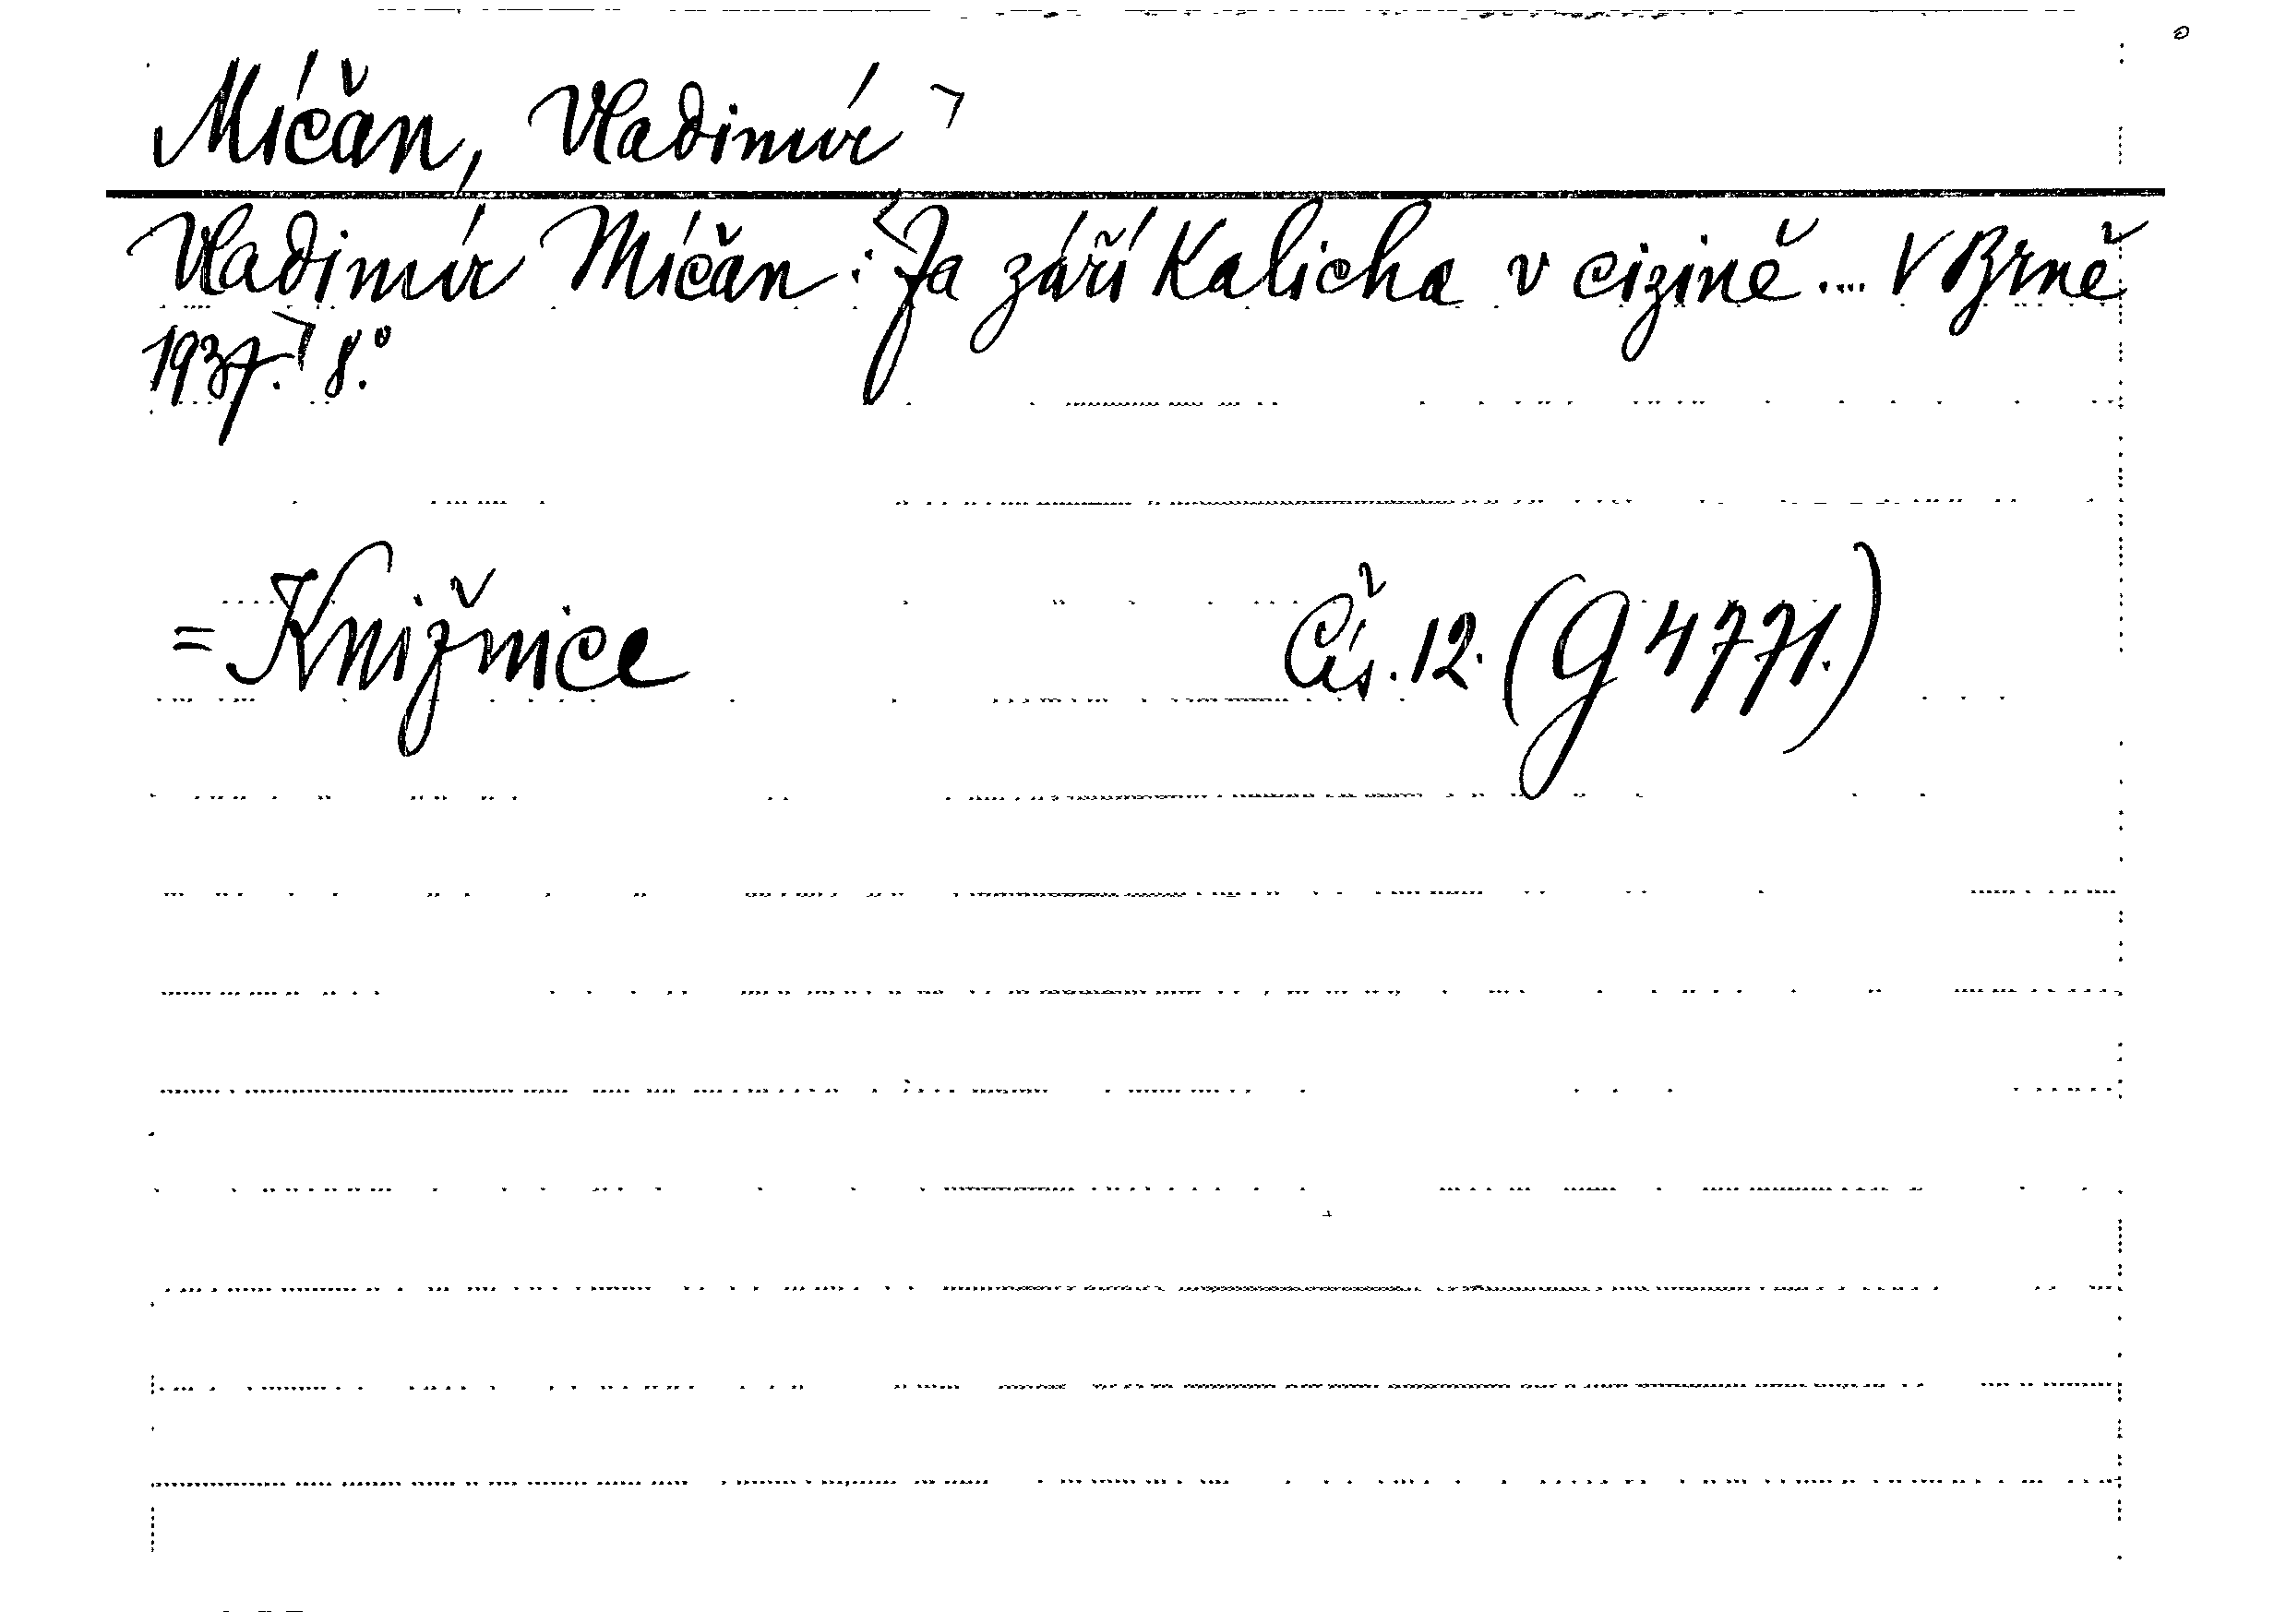 Míčan, Vladimír
Vladimír Míčan: Za září Kalicha v cizině.... V Brně
1937. 8.°
= Knižnice Čís. 12. (G 4771.)